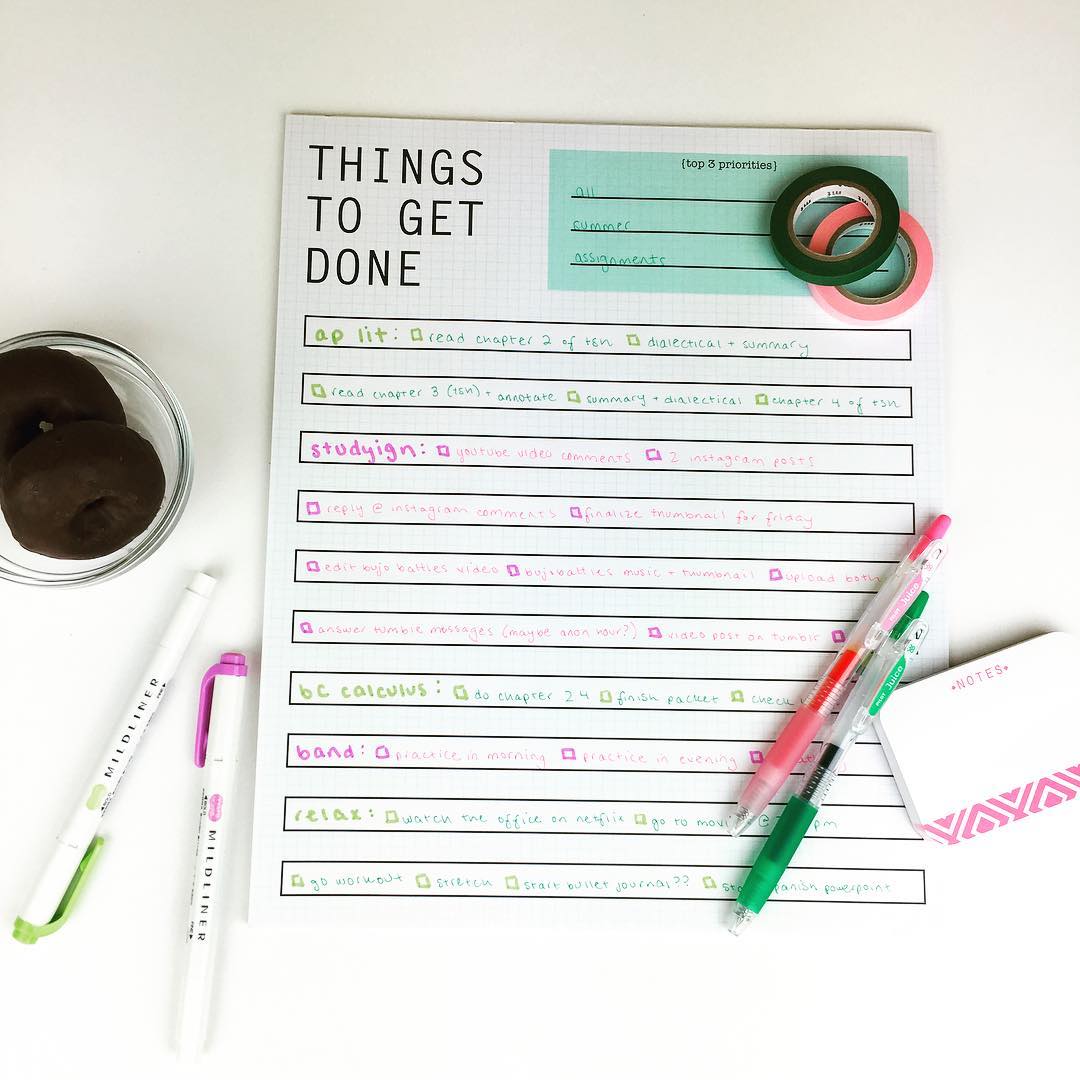 THINGS
TO GET
DONE
{top 3 priorities}
all
summer
assignments
ap lit: read chapter 2 of tsn dialectical + summary
read chapter 3 (tsn) + annotate summary + dialectical chapter 4 of tsn
studyign: youtube video comments 2 instagram posts
reply @ instagram comments finalize thumbnail for friday
edit bujo battles video bujo battles music + thumbnail upload both
answer tumblr messages (maybe anon hour?) video post on tumblr
bc calculus: do chapter 24 finish packet check
band: practice in morning practice in evening
relax: watch the office on netflix go to @ pm
go workout stretch start bullet journal?? powerpoint
MILDLINER
MILDLINER
Juice
Juice
NOTES